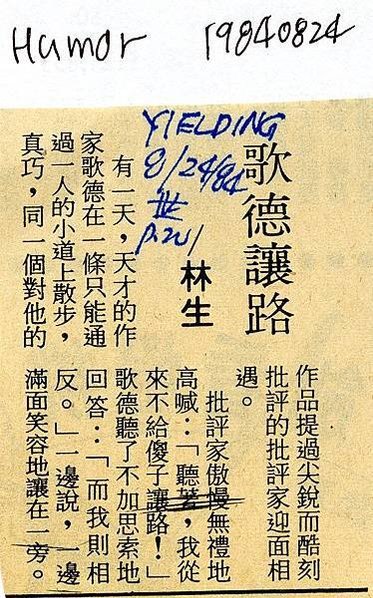 Humor 19840824
YIELDING
8/24/84
世
歌德讓路
林生
有一天，天才的作
家歌德在一條只能通
過一人的小道上散步，
真巧，同一個對他的
作品提過尖銳而酷刻
批評的批評家迎面相
遇。
批評家傲慢無禮地
高喊：「聽著，我從
來不給傻子讓路！」
歌德聽了不加思索地
回答：「而我則相
反。」一邊說，一邊
滿面笑容地讓在一旁。